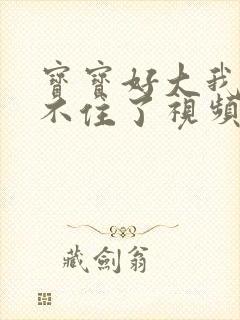 寶寶好大我
不住了視頻
藏劍翁